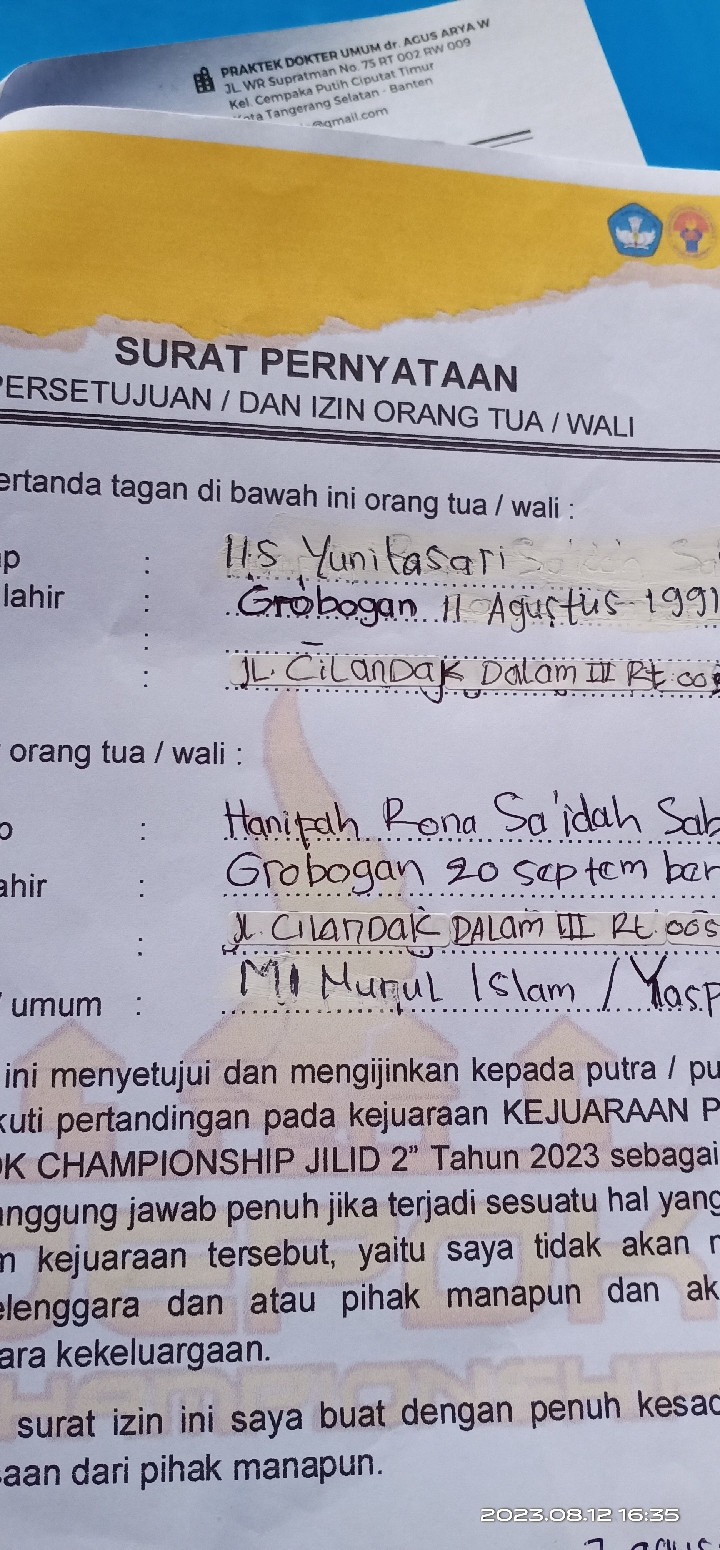 PRAKTEK DOKTER UMUM dr. AGUS ARYA W
JL. WR Supratman No. 75 RT 002 RW 009
Kel. Cempaka Putih Ciputat Timur
ota Tangerang Selatan - Banten
@gmail.com
SURAT PERNYATAAN
PERSETUJUAN / DAN IZIN ORANG TUA / WALI
ertanda tagan di bawah ini orang tua / wali :
ap : IIS Yunitasari
lahir : Grobogan 11 Agustus 1991
:
: JL. CiLanDak Dalam III Rt.00
orang tua / wali :
: Hanifah Rona Sa'idah Sab
ahir : Grobogan 20 September
: Jl. CilanDak DALam III Rt.005
umum : MI Nurul Islam / Yasp
ini menyetujui dan mengijinkan kepada putra / pu
kuti pertandingan pada kejuaraan KEJUARAAN P
OK CHAMPIONSHIP JILID 2” Tahun 2023 sebagai
anggung jawab penuh jika terjadi sesuatu hal yang
m kejuaraan tersebut, yaitu saya tidak akan
elenggara dan atau pihak manapun dan ak
ara kekeluargaan.
surat izin ini saya buat dengan penuh kesad
saan dari pihak manapun.
2023.08.12 16:35